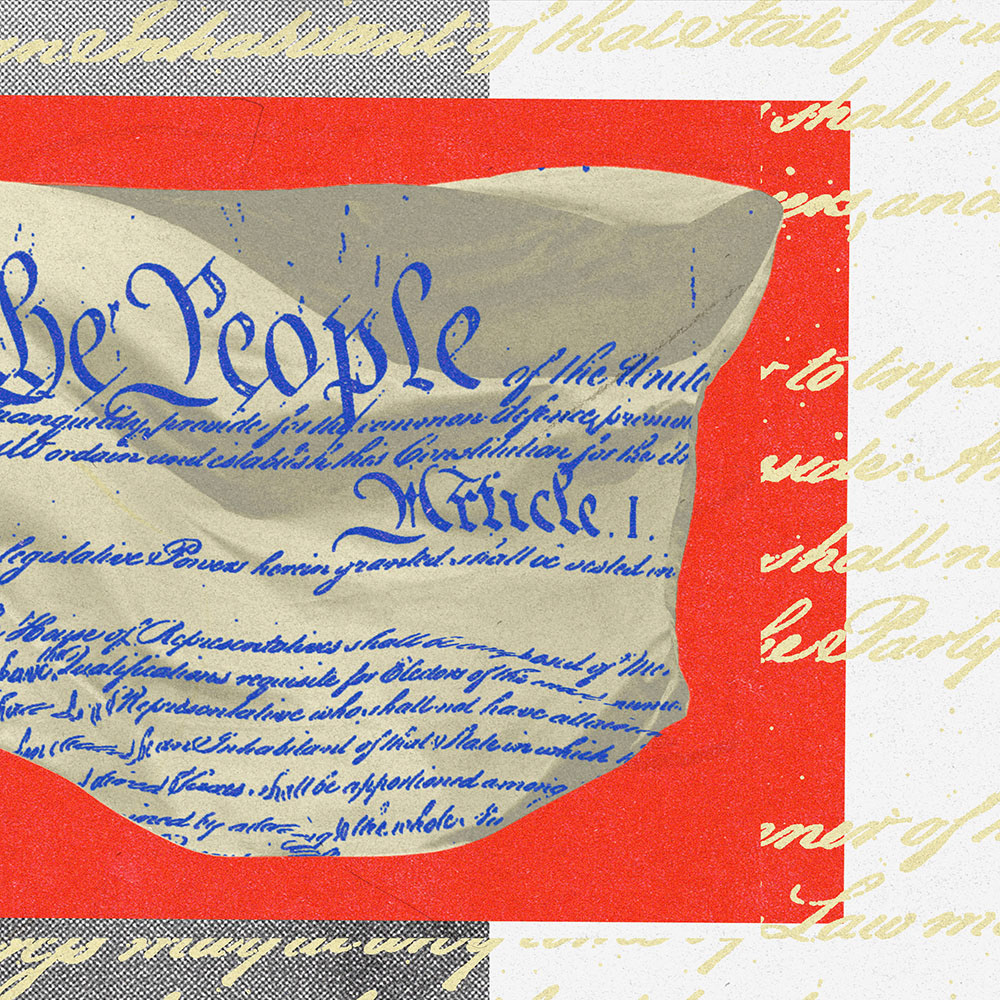 an Inhabitant of that State for w
shall be
and
he People of the Unite
ranquility, provide for the common defence, promo
ordain and establish this Constitution for the
Article. I.
legislative Powers herein granted shall be vested in
House of Representatives shall be composed of Me
have the Qualifications requisite for Electors of the most nume
Representative who shall not have attain
be an Inhabitant of that State in which
shall be apportioned among
r to try a
side:
shall n
he Party
ined by adding to the whole
ner of
Law m
may